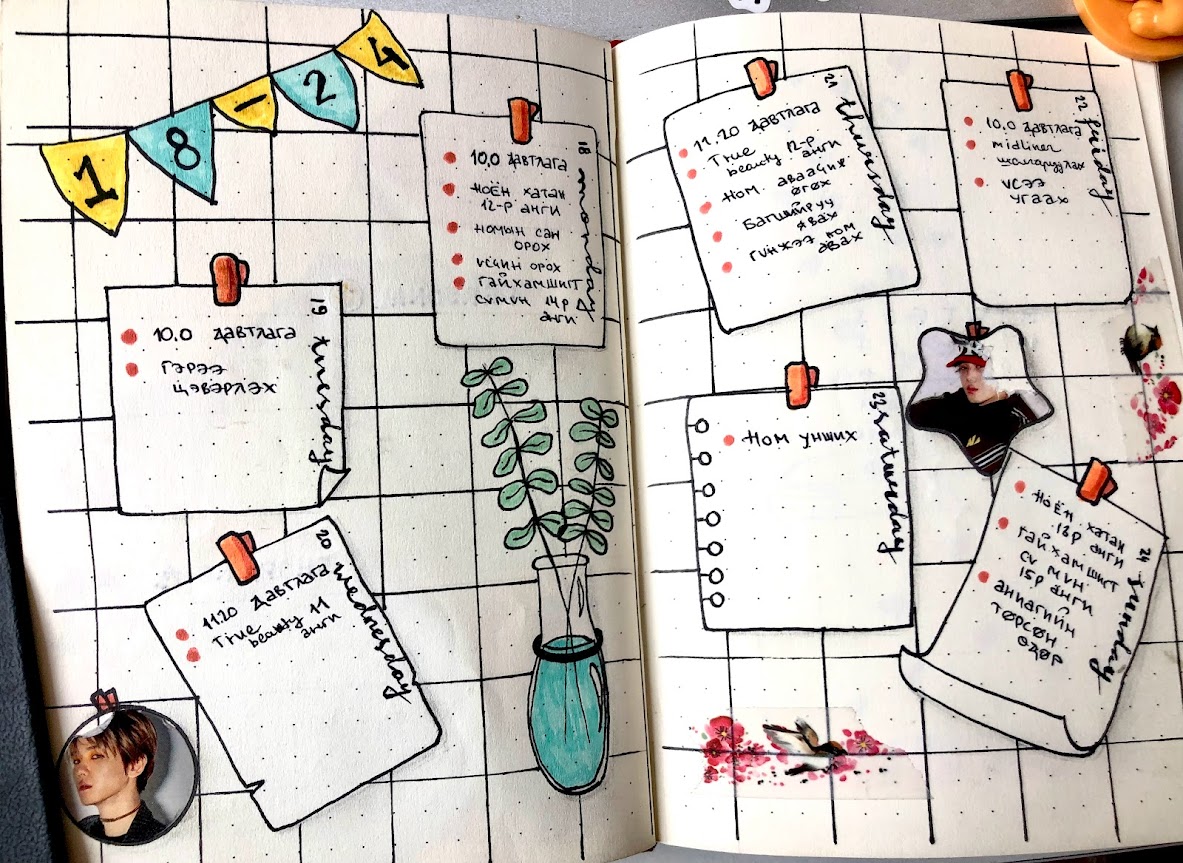 18-24
18 monday
10.0 давтлага
ноён хатан
12-р анги
номын сан
орох
үсчин орох
гайхамшигт
сүмүн 14р
анги
19 tuesday
10.0 давтлага
гэрээ
цэвэрлэх
20 wednesday
11.20 давтлага
True
beauty 11
анги
21 thursday
11.20 давтлага
True
beauty 12-р
анги
ном аваачиж
өгөх
Багшийрүү
явах
гүнжээ ном
авах
22 friday
10.0 давтлага
midliner
шалгаруулах
үсээ
угаах
23 saturday
ном унших
24 sunday
ноён хатан
13р анги
гайхамшигт
сү мүн
15р анги
аниагийн
төрсөн
өдөр